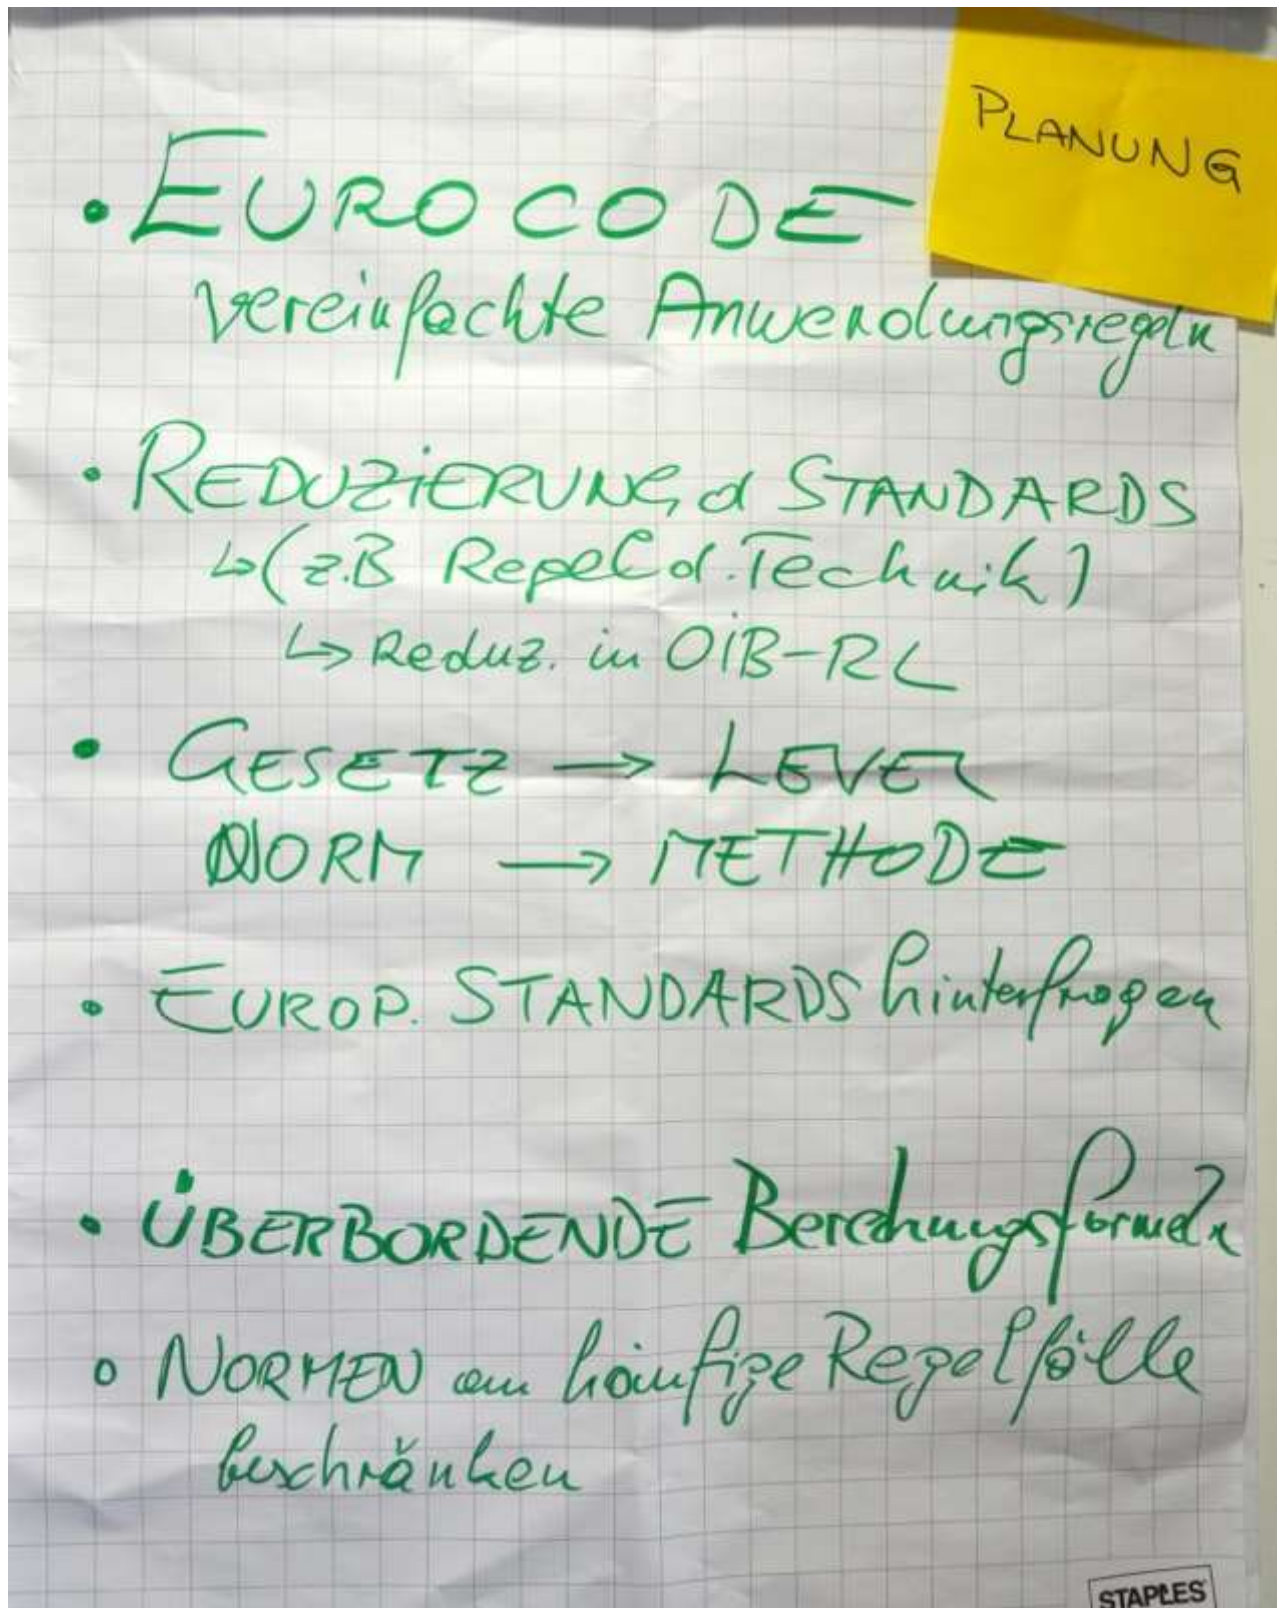 PLANUNG
• EUROCODE
vereinfachte Anwendungsregeln
• REDUZIERUNG d STANDARDS
↳ (z.B Regel d. Technik)
↳ Reduz. in OIB-RL
• GESETZ → LEVEL
NORM → METHODE
• EUROP. STANDARDS hinterfragen
• ÜBERBORDENDE Berechnungsformeln
• NORMEN am häufige Regelfälle
beschränken
STAPLES